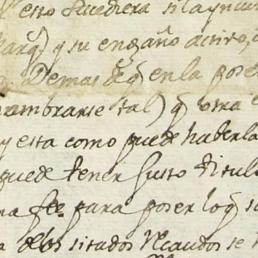 esto sucediera si la yncur
y su engaño activo,
Demas de q en la poses
nombrarse tal) q otra e
y esta como puede haberla
puede tener Justo titulo
na fee para poser lo q s
a de los sitados Vecaudos se h